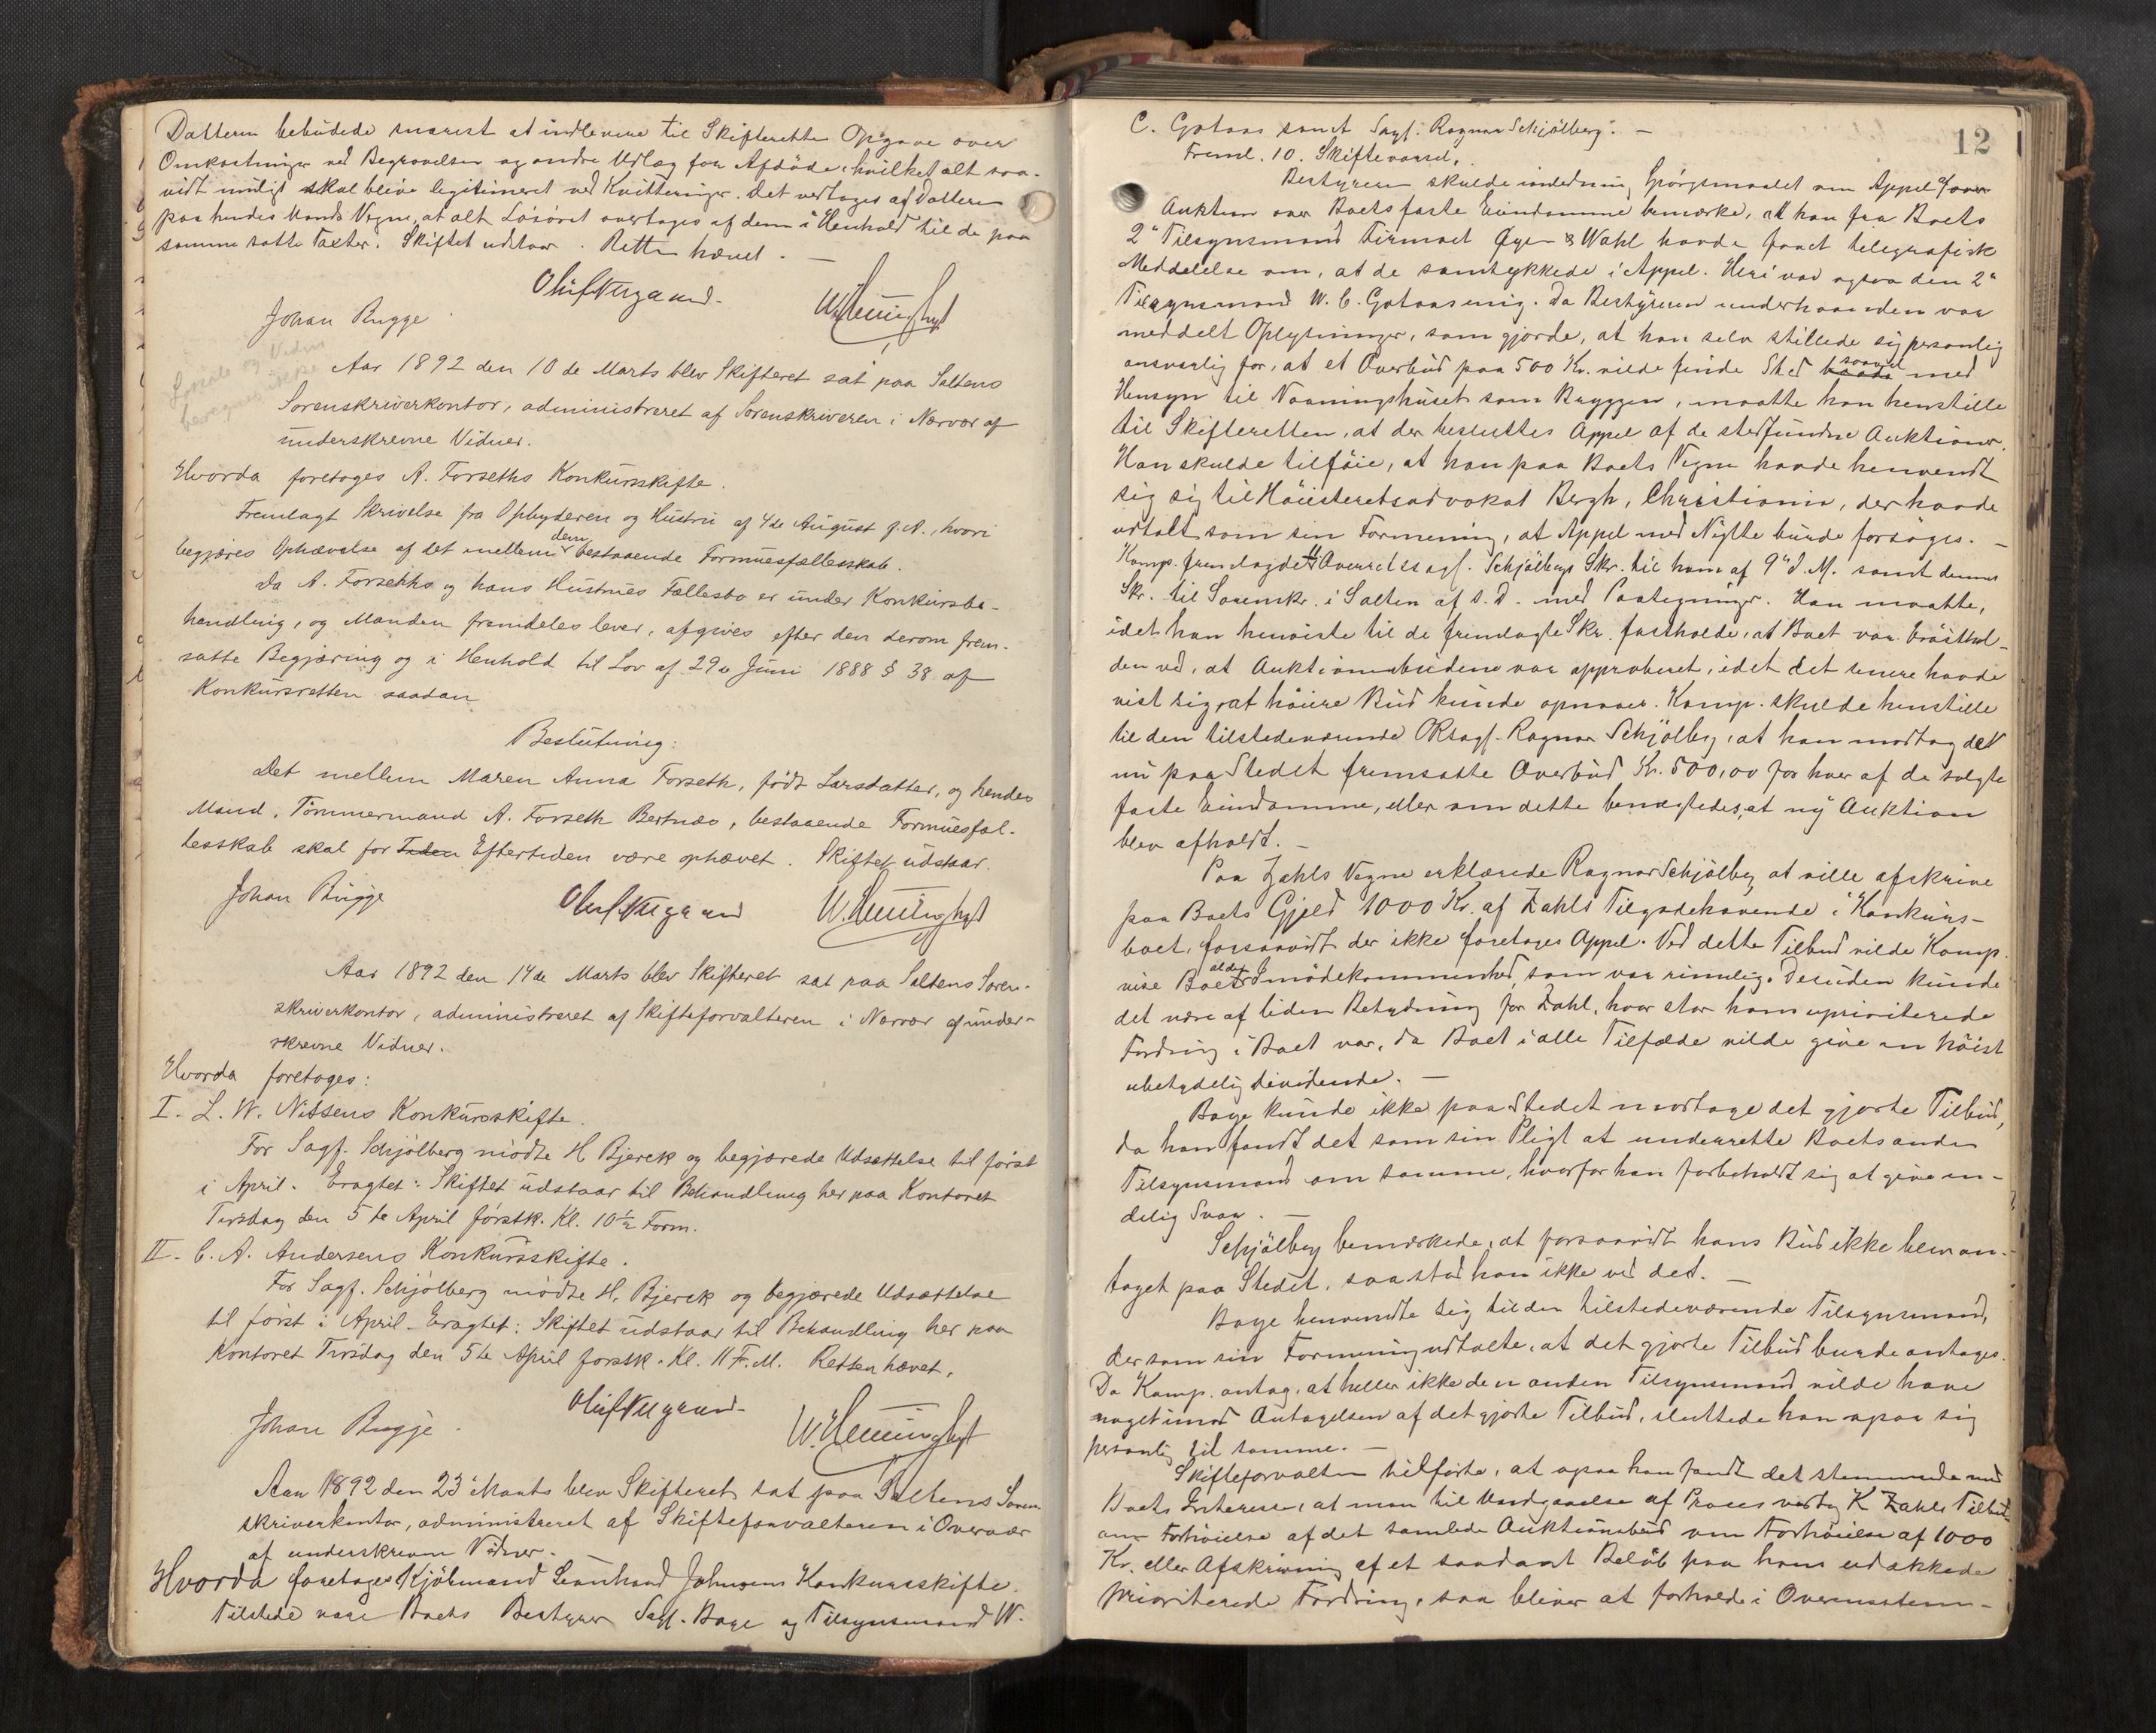 Datteren bebudede snarest at indlevere til Skifteretten Opgave over
Omkostninger ved Begravelsen og andre Udlæg for Afdøde, hvilket alt saa-
vidt muligt skal blive legitimeret ved Kvitteringer. Det vedtages af Datteren
paa hendes Mands Vegne, at alt Løsøret overtages af dem i Henhold til de paa
samme satte Taxter. Skiftet udstaar. Retten hævet. —
Johan Bugge
Aar 1892 den 10de Marts blev Skifteret sat paa Saltens
Sorenskriverkontor, administreret af Sorenskriveren i Nærvær af
underskrevne Vidner.
Hvorda foretoges A. Forseths Konkursskifte.
Fremlagt Skrivelse fra Opbyderen og Hustru af 4de August f. A., hvori
begjæres Ophævelse af det mellem dem bestaaende Formuesfællesskab.
Da A. Forseths og hans Hustrues Fællesbo er under Konkursbe-
handling, og Manden fremdeles lever, afgives efter den derom frem-
satte Begjæring og i Henhold til Lov af 29de Juni 1888 § 38 af
Konkursretten saadan
Beslutning:
Det mellem Maren Anna Forseth, født Larsdatter, og hendes
Mand, Tømmermand A. Forseth Bertnæs, bestaaende Formuesfæl-
lesskab skal for Tiden Eftertiden være ophævet. Skiftet udstaar.
Johan Bugge
Aar 1892 den 14de Marts blev Skifteret sat paa Saltens Soren-
skriverkontor, administreret af Skifteforvalteren i Nærvær af under-
skrevne Vidner.
Hvorda foretoges:
I. L. W. Nissens Konkursskifte.
For Sagf. Schjølberg mødte H Bjerck og begjærede Udsættelse til først
i April. Eragtet: Skiftet udstaar til Behandling her paa Kontoret
Tirsdag den 5te April førstk. Kl. 10½ Form.
II. C. A. Andersens Konkursskifte.
For Sagf. Schjølberg mødte H. Bjerck og begjærede Udsættelse
til først i April. Eragtet: Skiftet udstaar til Behandling her paa
Kontoret Tirsdag den 5te April førstk. Kl. 11 F.M. Retten hævet.
Johan Bugge
Aar 1892 den 23de Marts blev Skifteret sat paa Saltens Soren
skriverkontor, administreret af Skifteforvalteren i Overvær
af underskrevne Vidner.
Hvorda foretoges Kjøbmand Leonhard Johnsens Konkursskifte.
Tilstede vare Boets Bestyrer Sagf. Bage og Tilsynsmand W.
12
C. Gotaas samt Sagf. Ragnar Schjölberg. —
Freml. 10. Skiftevarsel.
Bestyreren skulde indledning Spörgsmaalet om Appel af over
Auktion over Boets faste Eiendomme bemærke, at han fra Boets
2den Tilsynsmand Firmaet Øyen & Wahl havde faaet telegrafisk
Meddelelse om, at de samtykkede i Appel. Heri var ogsaa den 2den
Tilsynsmand W. C. Gotaas enig. Da Bestyreren underhaanden var
meddelt Oplysninger, som gjorde, at han selv stillede sig personlig
ansvarlig for, at et Overbud paa 500 Kr. vilde finde Sted baade saavel med
Hensyn til Vaaningshuset som Bryggen, maatte han henstille
til Skifteretten, at der besluttes Appel af de stedfundne Auktioner.
Han skulde tilföie, at han paa Boets Vegne havde henvendt
sig sig til Höiesteretsadvokat Bergh, Christiania, der havde
udtalt som sin Formening, at Appel med Nytte burde forsöges. —
Komp. fremlagde 11 Overretssagf. Schjölbergs Skr. til ham af 9de d. M. samt dennes
Skr. til Sorenskr. i Salten af s. D. med Paategninger. Han maatte,
idet han henviste til de fremlagte Skr. fastholde, at Boet var brösthol-
den ved, at Auktionsbudene var approberet, idet det senere havde
vist sig, at höiere Bud kunde opnaaes. Komp. skulde henstille
til den tilstedeværende ORsagf. Ragnar Schjölberg, at han modtog det
nu paa Stedet fremsatte Overbud Kr. 500,00 for hver af de solgte
faste Eiendomme, eller om dette benægtedes, at ny Auktion
blev afholdt. —
Paa Zahls Vegne erklærede Ragnar Schjölberg at ville afskrive
paa Boets Gjeld 1000 Kr. af Zahls Tilgodehavende i Konkurs-
boet, forsaavidt der ikke foretoges Appel. Ved dette Tilbud vilde Komp.
vise Boet al den Imödekommenhed, som var rimelig. Desuden kunde
det være af liden Betydning for Zahl, hvor stor hans uprioriterede
Fordring i Boet var, da Boet i alle Tilfælde vilde give en höist
ubetydelig Dividende. —
Bage kunde ikke paa Stedet modtage det gjorte Tilbud,
da han fandt det som sin Pligt at underrette Boets anden
Tilsynsmand om samme, hvorfor han forbeholdt sig at give en-
delig Svar. —
Schjölberg bemærkede, at forsaavidt hans Bud ikke blev an-
taget paa Stedet, saa stod han ikke ved det. —
Bage henvendte sig til den tilstedeværende Tilsynsmand,
der som sin Formening udtalte, at det gjorte Tilbud burde antages.
Da Komp. antog, at heller ikke den anden Tilsynsmand vilde have
noget imod Antagelsen af det gjorte Tilbud, sluttede han ogsaa sig
personlig til samme. —
Skifteforvalteren tilförte, at ogsaa han fandt det stemmende med
Boets Interesse, at man til Undgaaelse af Proces vedtog K Zahls Tilbud
om Forhöielse af det samlede Auktionsbud om Forhöielse af 1000
Kr. eller Afskrivning af et saadant Belöb paa hans udækkede
prioriterede Fordring, saa bliver at forholde i Overensstem-